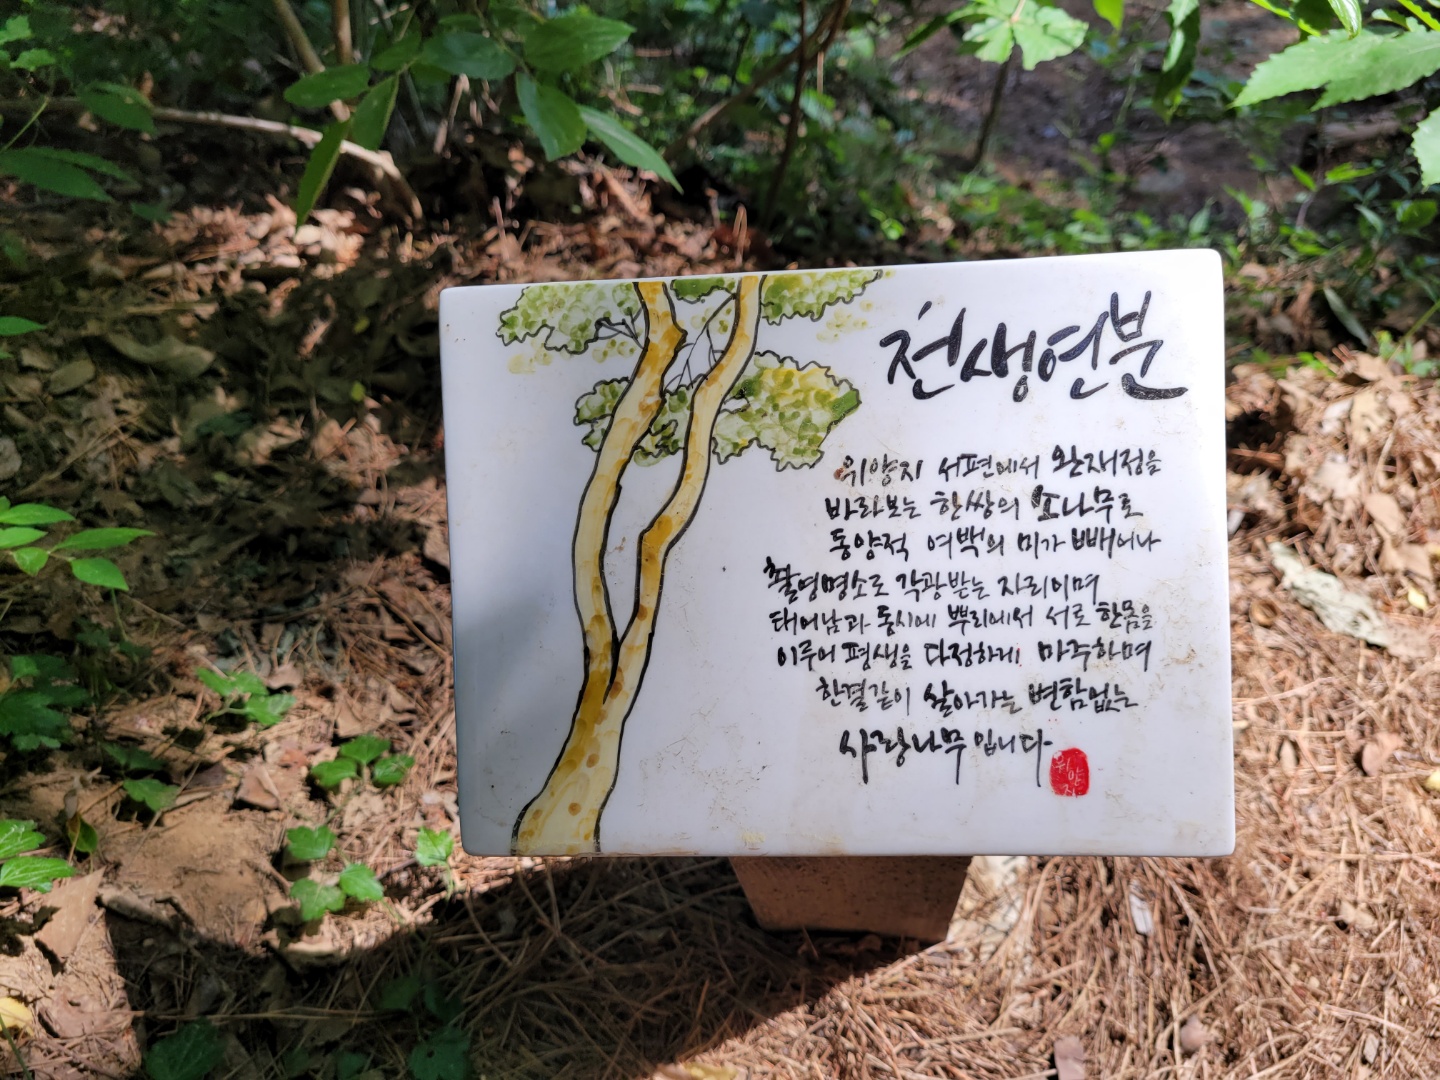 천생연분
위양지 서편에서 완재정을
바라보는 한쌍의 소나무로
동양적 여백의 미가 빼어나
촬영명소로 각광받는 자리이며
태어남과 동시에 뿌리에서 서로 한몸을
이루어 평생을 다정하게 마주하며
한결같이 살아가는 변함없는
사랑나무입니다
위양지